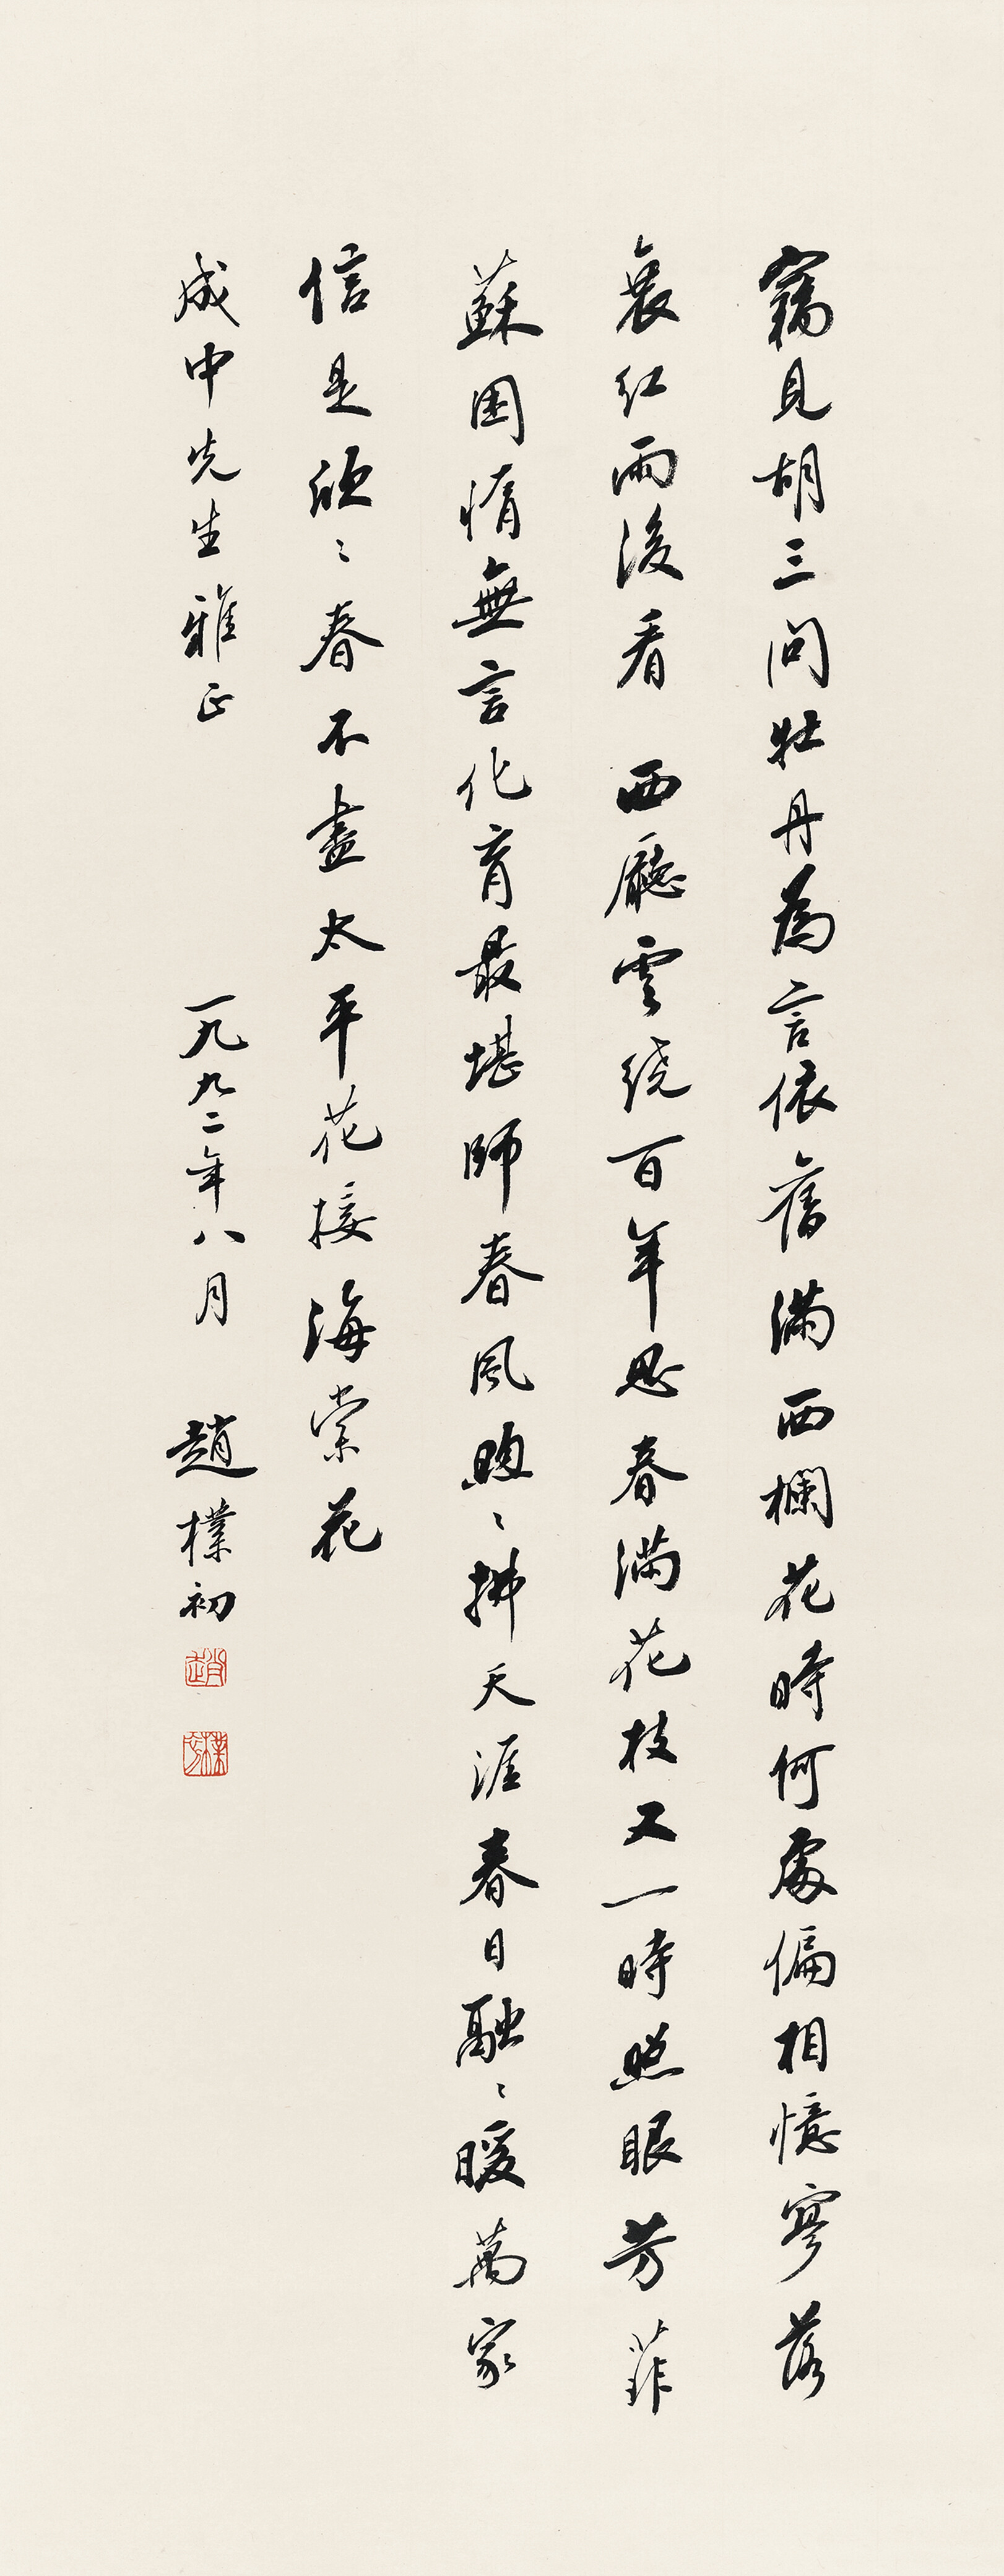 竊見胡三問牡丹為言依舊滿西欄花時何處偏相憶寥落
衰紅雨後看 西廳雲繞百年思春滿花枝又一時照眼芳菲
蘇困惰無言化育最堪師春風煦〻拂天涯春日融〻暖萬家
信是欣〻春不盡太平花接海棠花
成中先生雅正 一九九二年八月 趙樸初
趙
樸初